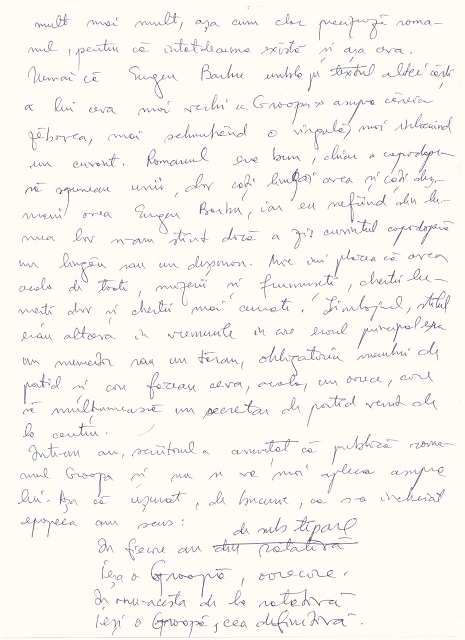 mult mai mult, așa cum clar precizează roma-
nul, pentru că întotdeauna există și așa ceva.
Numai că Eugen Barbu umbla și textul altei cărți
a lui ceva mai vechi « Groapa » asupra căreia
zăbovea, mai schimbând o virgulă, mai înlocuind
un cuvânt. Romanul era bun, chiar o capodope-
ră spuneau unii, dar câți lingăi avea și câți duș-
mani avea Eugen Barbu, iar eu nefiind din lu-
mea lor n-am știut dacă a zis cuvântul capodoperă
un lingău sau un dușman. Mie îmi plăcea că avea
acolo de toate, mizerii și frumuseți, chestii lu-
mești dar și chestii mai curate. Limbajul, stilul
erau altceva în vremurile în care eroul principal era
un muncitor sau un țăran, obligatoriu membru de
partid și care făceau ceva, acolo, un orice, care
să mulțumească un secretar de partid venit de
la centru.
Într-un an, scriitorul a anunțat că publică roma-
nul Groapa și nu se va mai apleca asupra
lui. Așa că ușurat, de bucurie, că s-a încheiat
epopeea am scris:
de sub tipar
În fiecare an din rotativă
Ieșea o Groapă, oarecare.
În anu-acesta de la rotativă
Ieși o Groapă, cea definitivă.